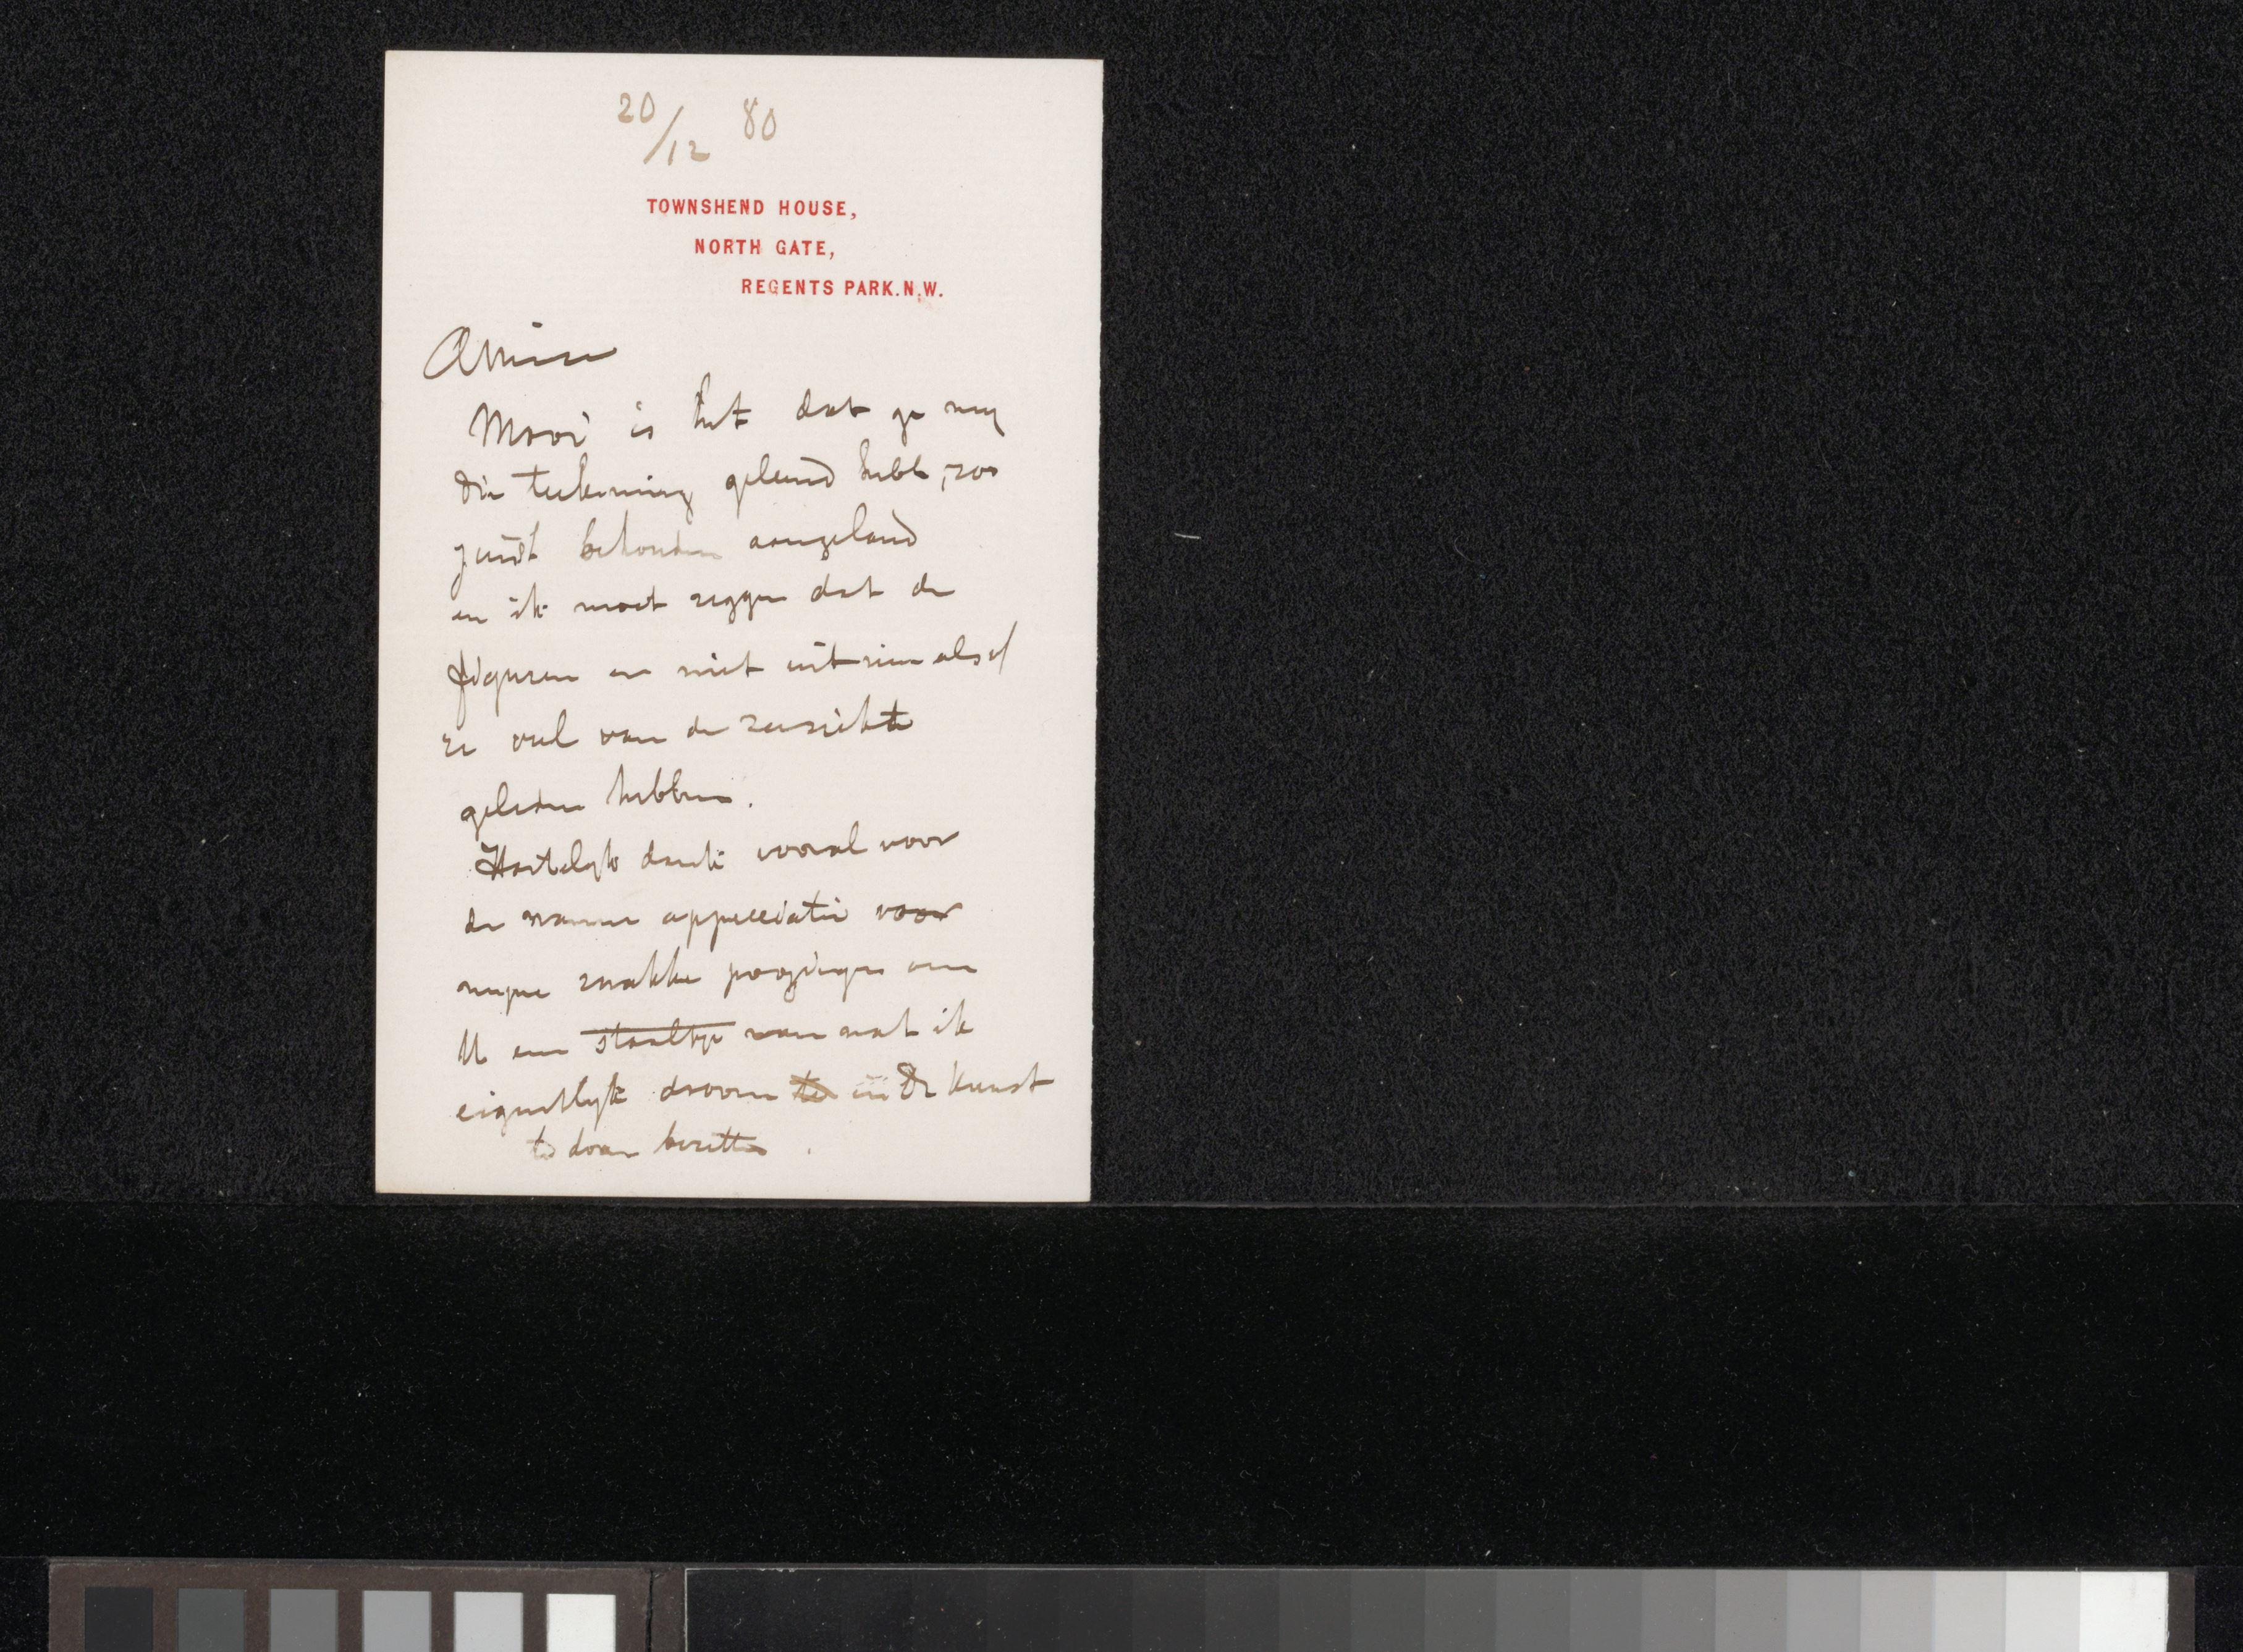 20/12 80
TOWNSHEND HOUSE,
NORTH GATE,
REGENTS PARK.N.W.
Amice
Mooi is het dat ge my
die teekening geleend hebt, zoo
juist behouden aangeland
en ik moet zeggen dat de
figuren er niet uitzien alsof
ze veel van de zeeziekte
geleden hebben.
Hartelyk dank vooral voor
de warme appreciatie voor
myne zwakke poogingen om
U een staaltje van wat ik
eigentlyk droom te in de kunst
te doen bezitten.